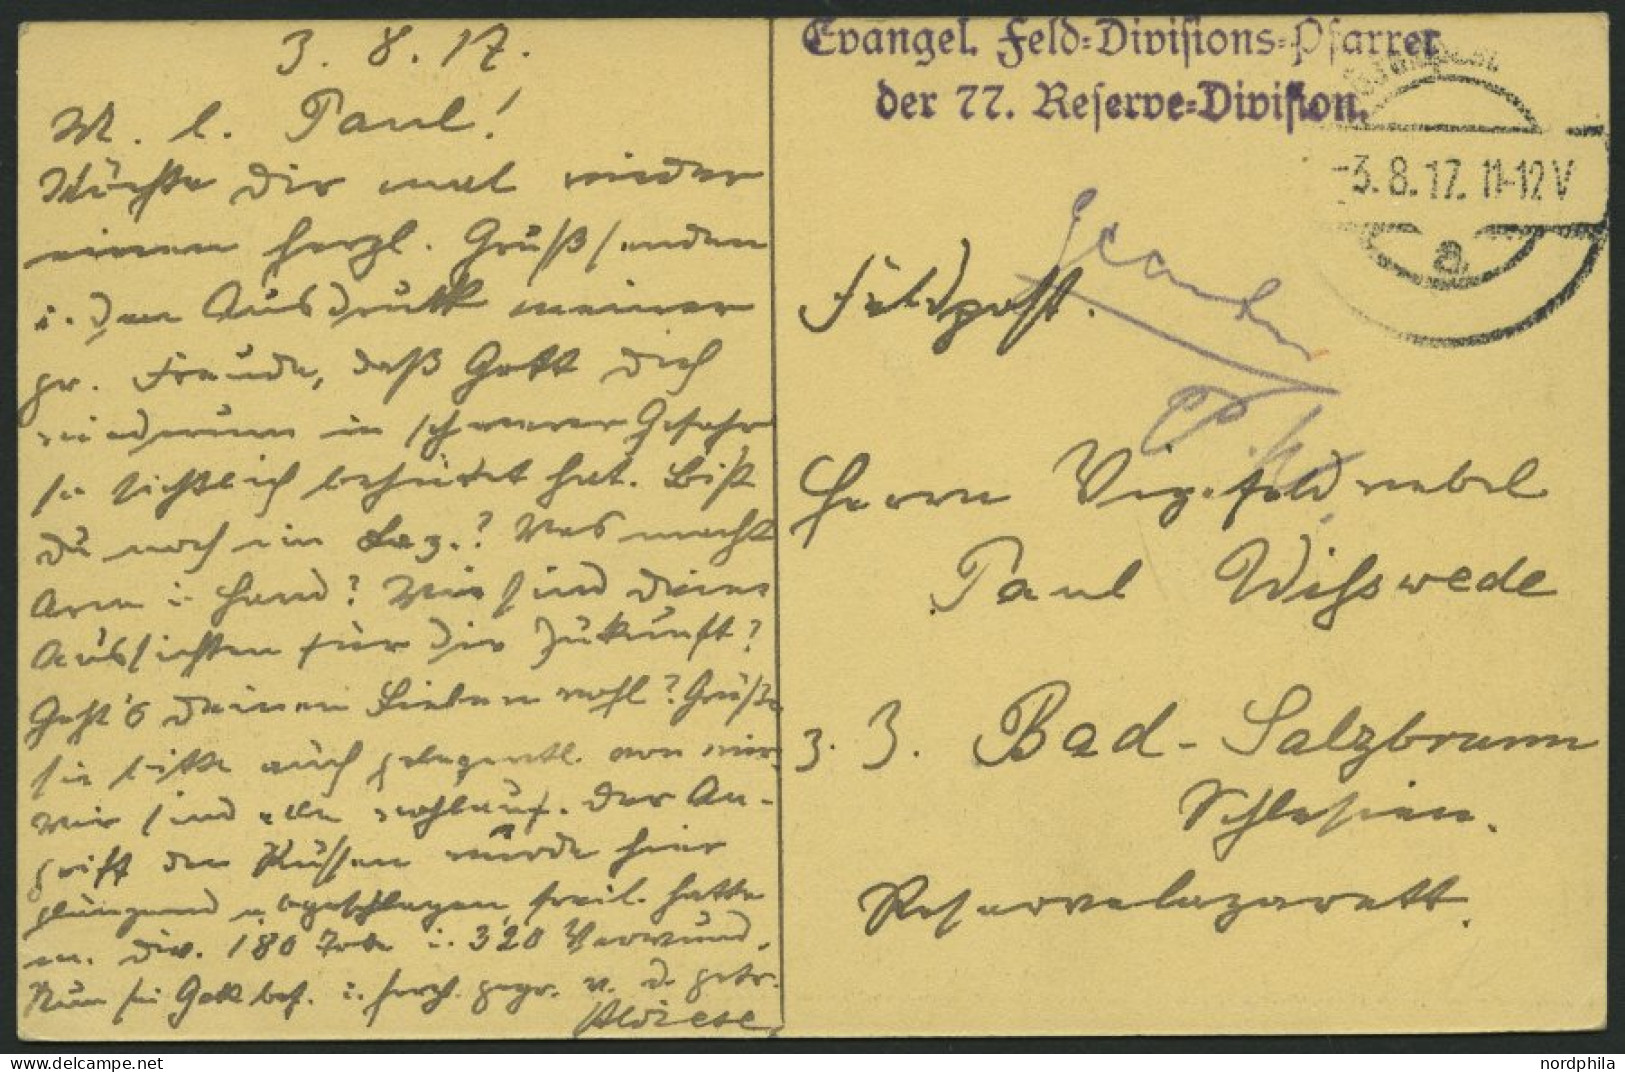 3. 8. 17.
M. l. Paul!
Möchte Dir mal wieder
einen herzl. Gruß senden
u. den Ausdruck meiner
gr. Freude, daß Gott Dich
wiederum in schwerer Gefahr
so sichtlich behütet hat. Bist
Du noch im Laz.? Was macht
Arm u. Hand? Wie sind Deine
Aussichten für die Zukunft?
Geht's Deinen Lieben wohl? Grüße
sie bitte auch gelegentl. von mir.
Wir sind alle wohlauf. Der An-
griff der Russen wurde hier
glänzend abgeschlagen, freil. hatte
m. Div. 180 Tote u. 320 Verwund.
Nun sei Gott bef. u. herzl. gegr. v. d. getr.
Evangel. Feld-Divisions-Pfarrer
der 77. Reserve-Division.
-3.8.17. 11-12V
a
Feldpost.
Herrn Vizefeldwebel
Paul Wisswede
z. Z. Bad-Salzbrunn
Schlesien.
Reservelazarett.
nordphila